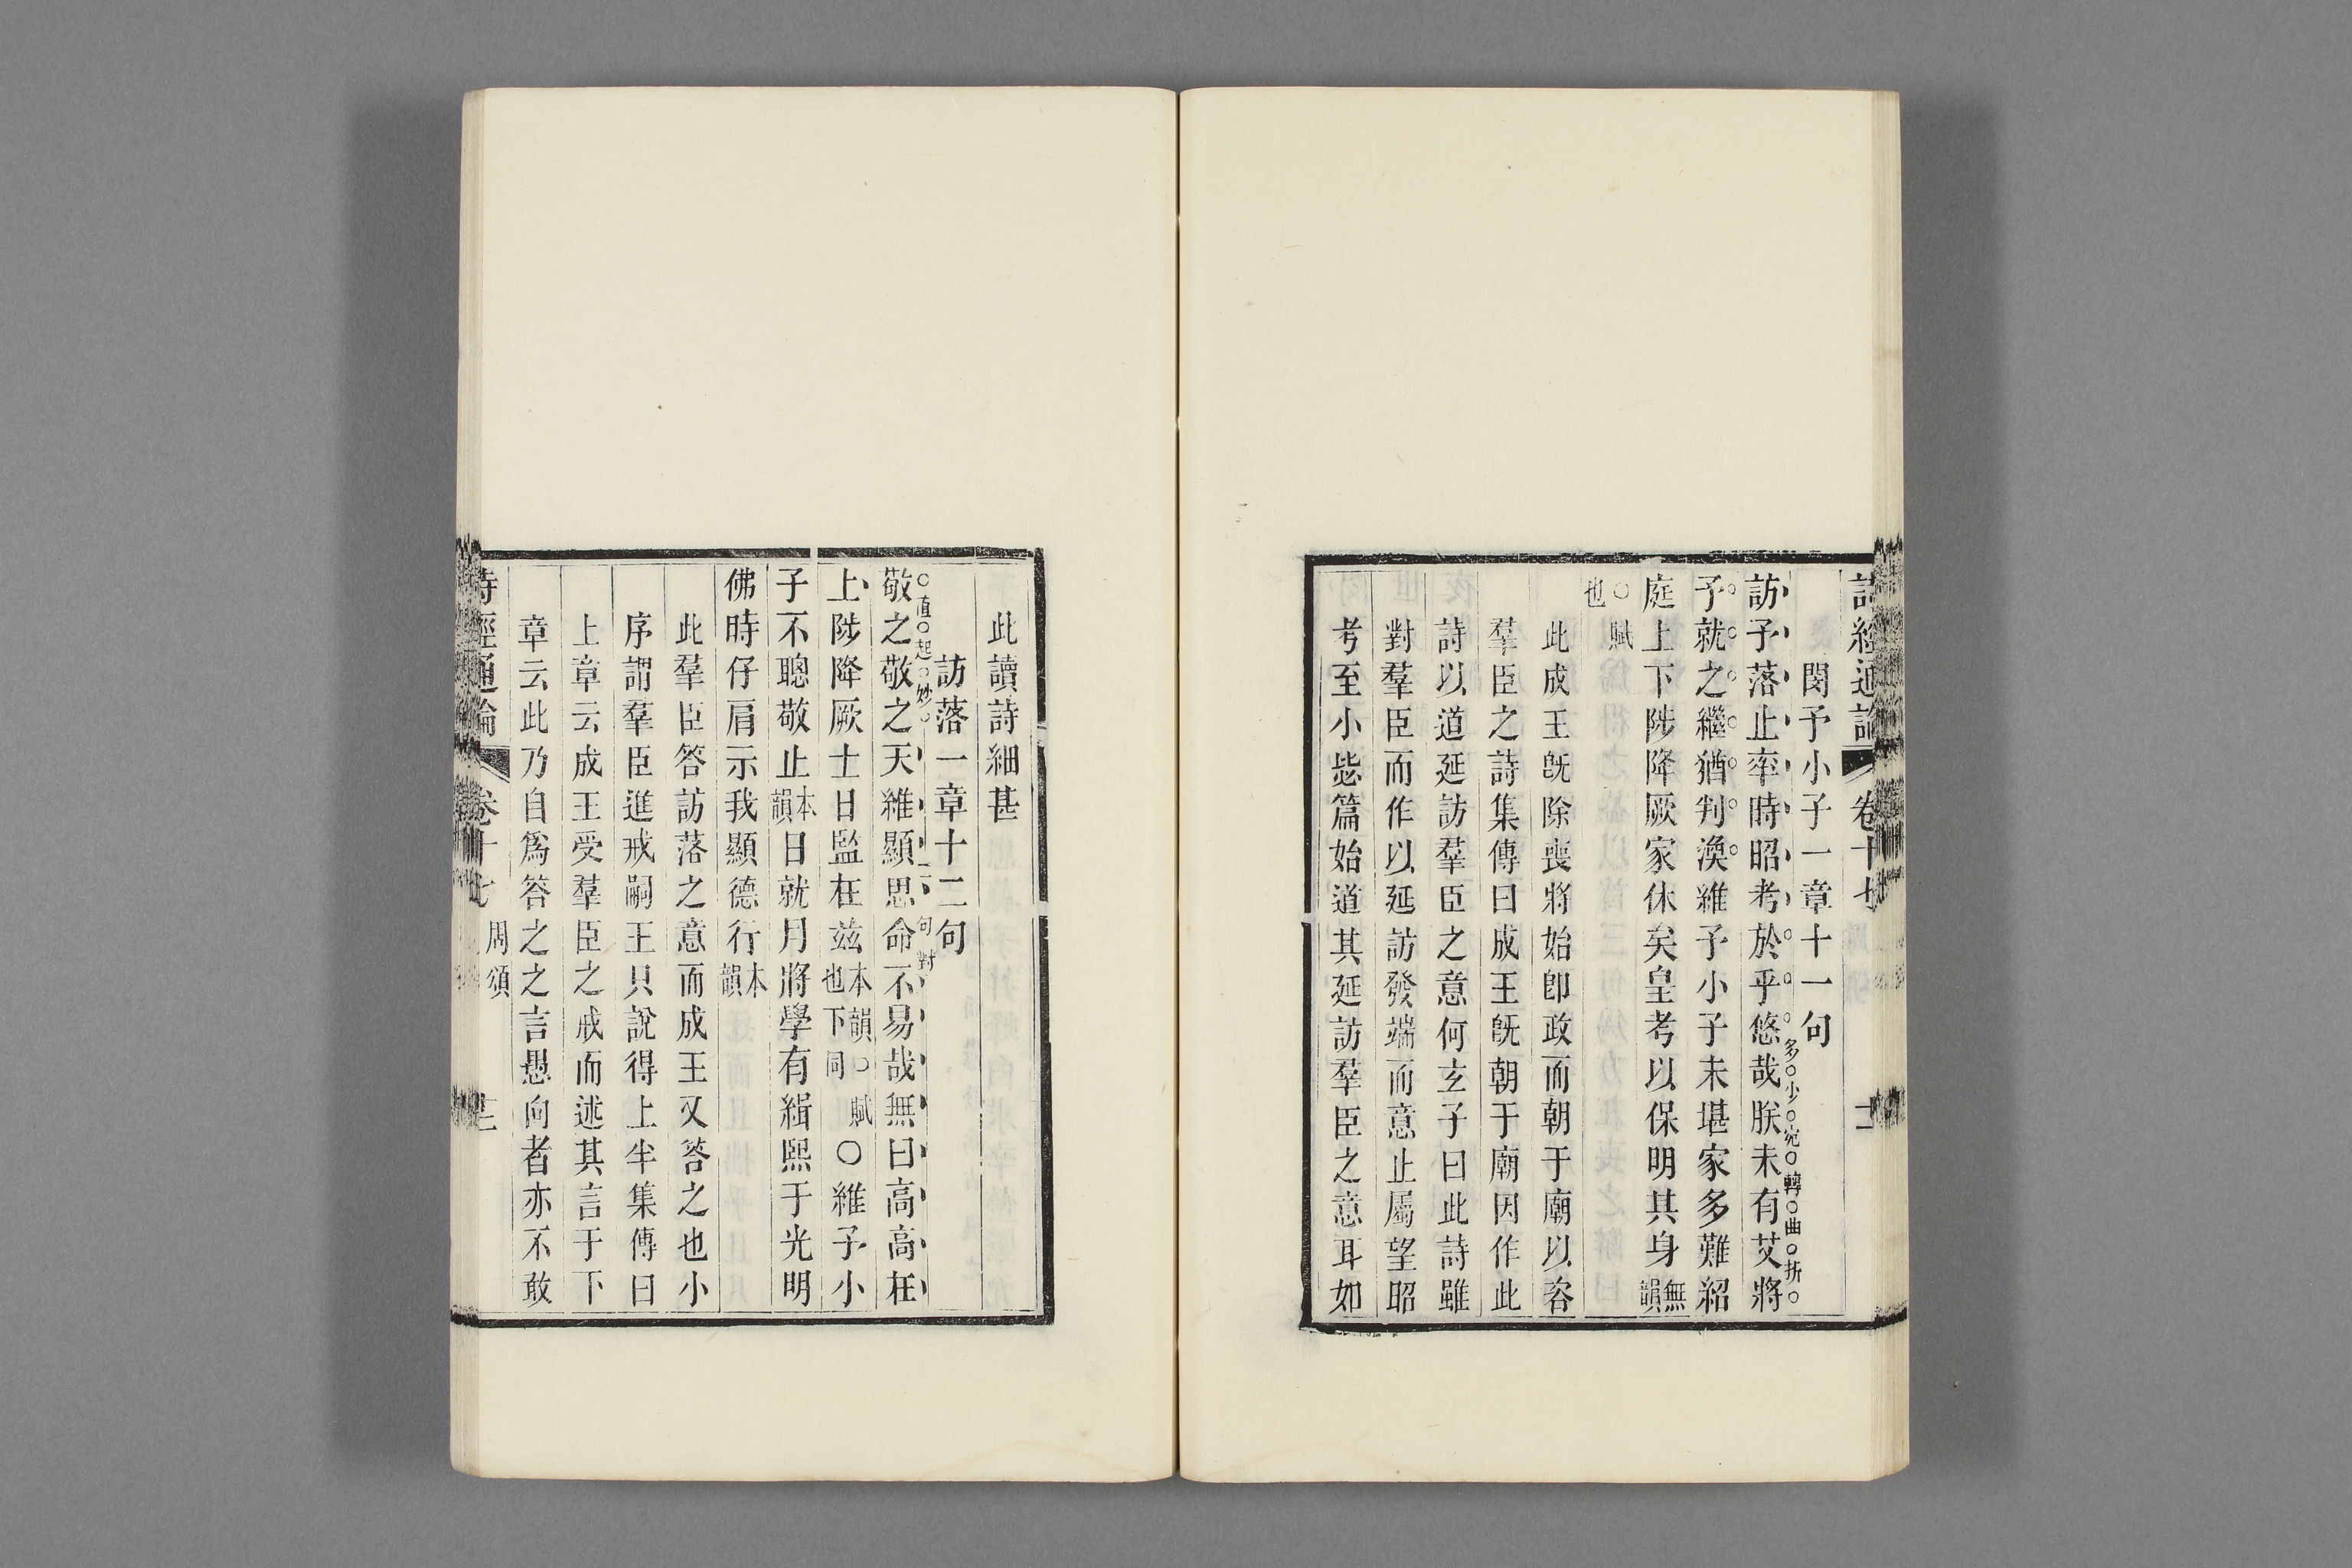 詩經通論 卷十七 十二
閔予小子一章十一句
訪予落止率時昭考於乎悠哉朕未有艾將
多少宛轉曲折
予就之繼猶判渙維予小子未堪家多難紹
庭上下陟降厥家休矣皇考以保明其身無韻
○賦也
此成王旣除喪將始卽政而朝于廟以咨
羣臣之詩集傳曰成王旣朝于廟因作此
詩以道延訪羣臣之意何玄子曰此詩雖
對羣臣而作以延訪發端而意止屬望昭
考至小毖篇始道其延訪羣臣之意耳如
此讀詩細甚
訪落一章十二句
敬之敬之天維顯思命不易哉無曰高高在
直起妙
句對
上陟降厥士日監在玆本韻○賦也下同○維予小
子不聰敬止本韻日就月將學有緝熙于光明
佛時仔肩示我顯德行本韻
此羣臣答訪落之意而成王又答之也小
序謂羣臣進戒嗣王只說得上半集傳曰
上章云成王受羣臣之戒而述其言于下
章云此乃自爲答之之言愚向者亦不敢
詩經通論 卷十七 周頌